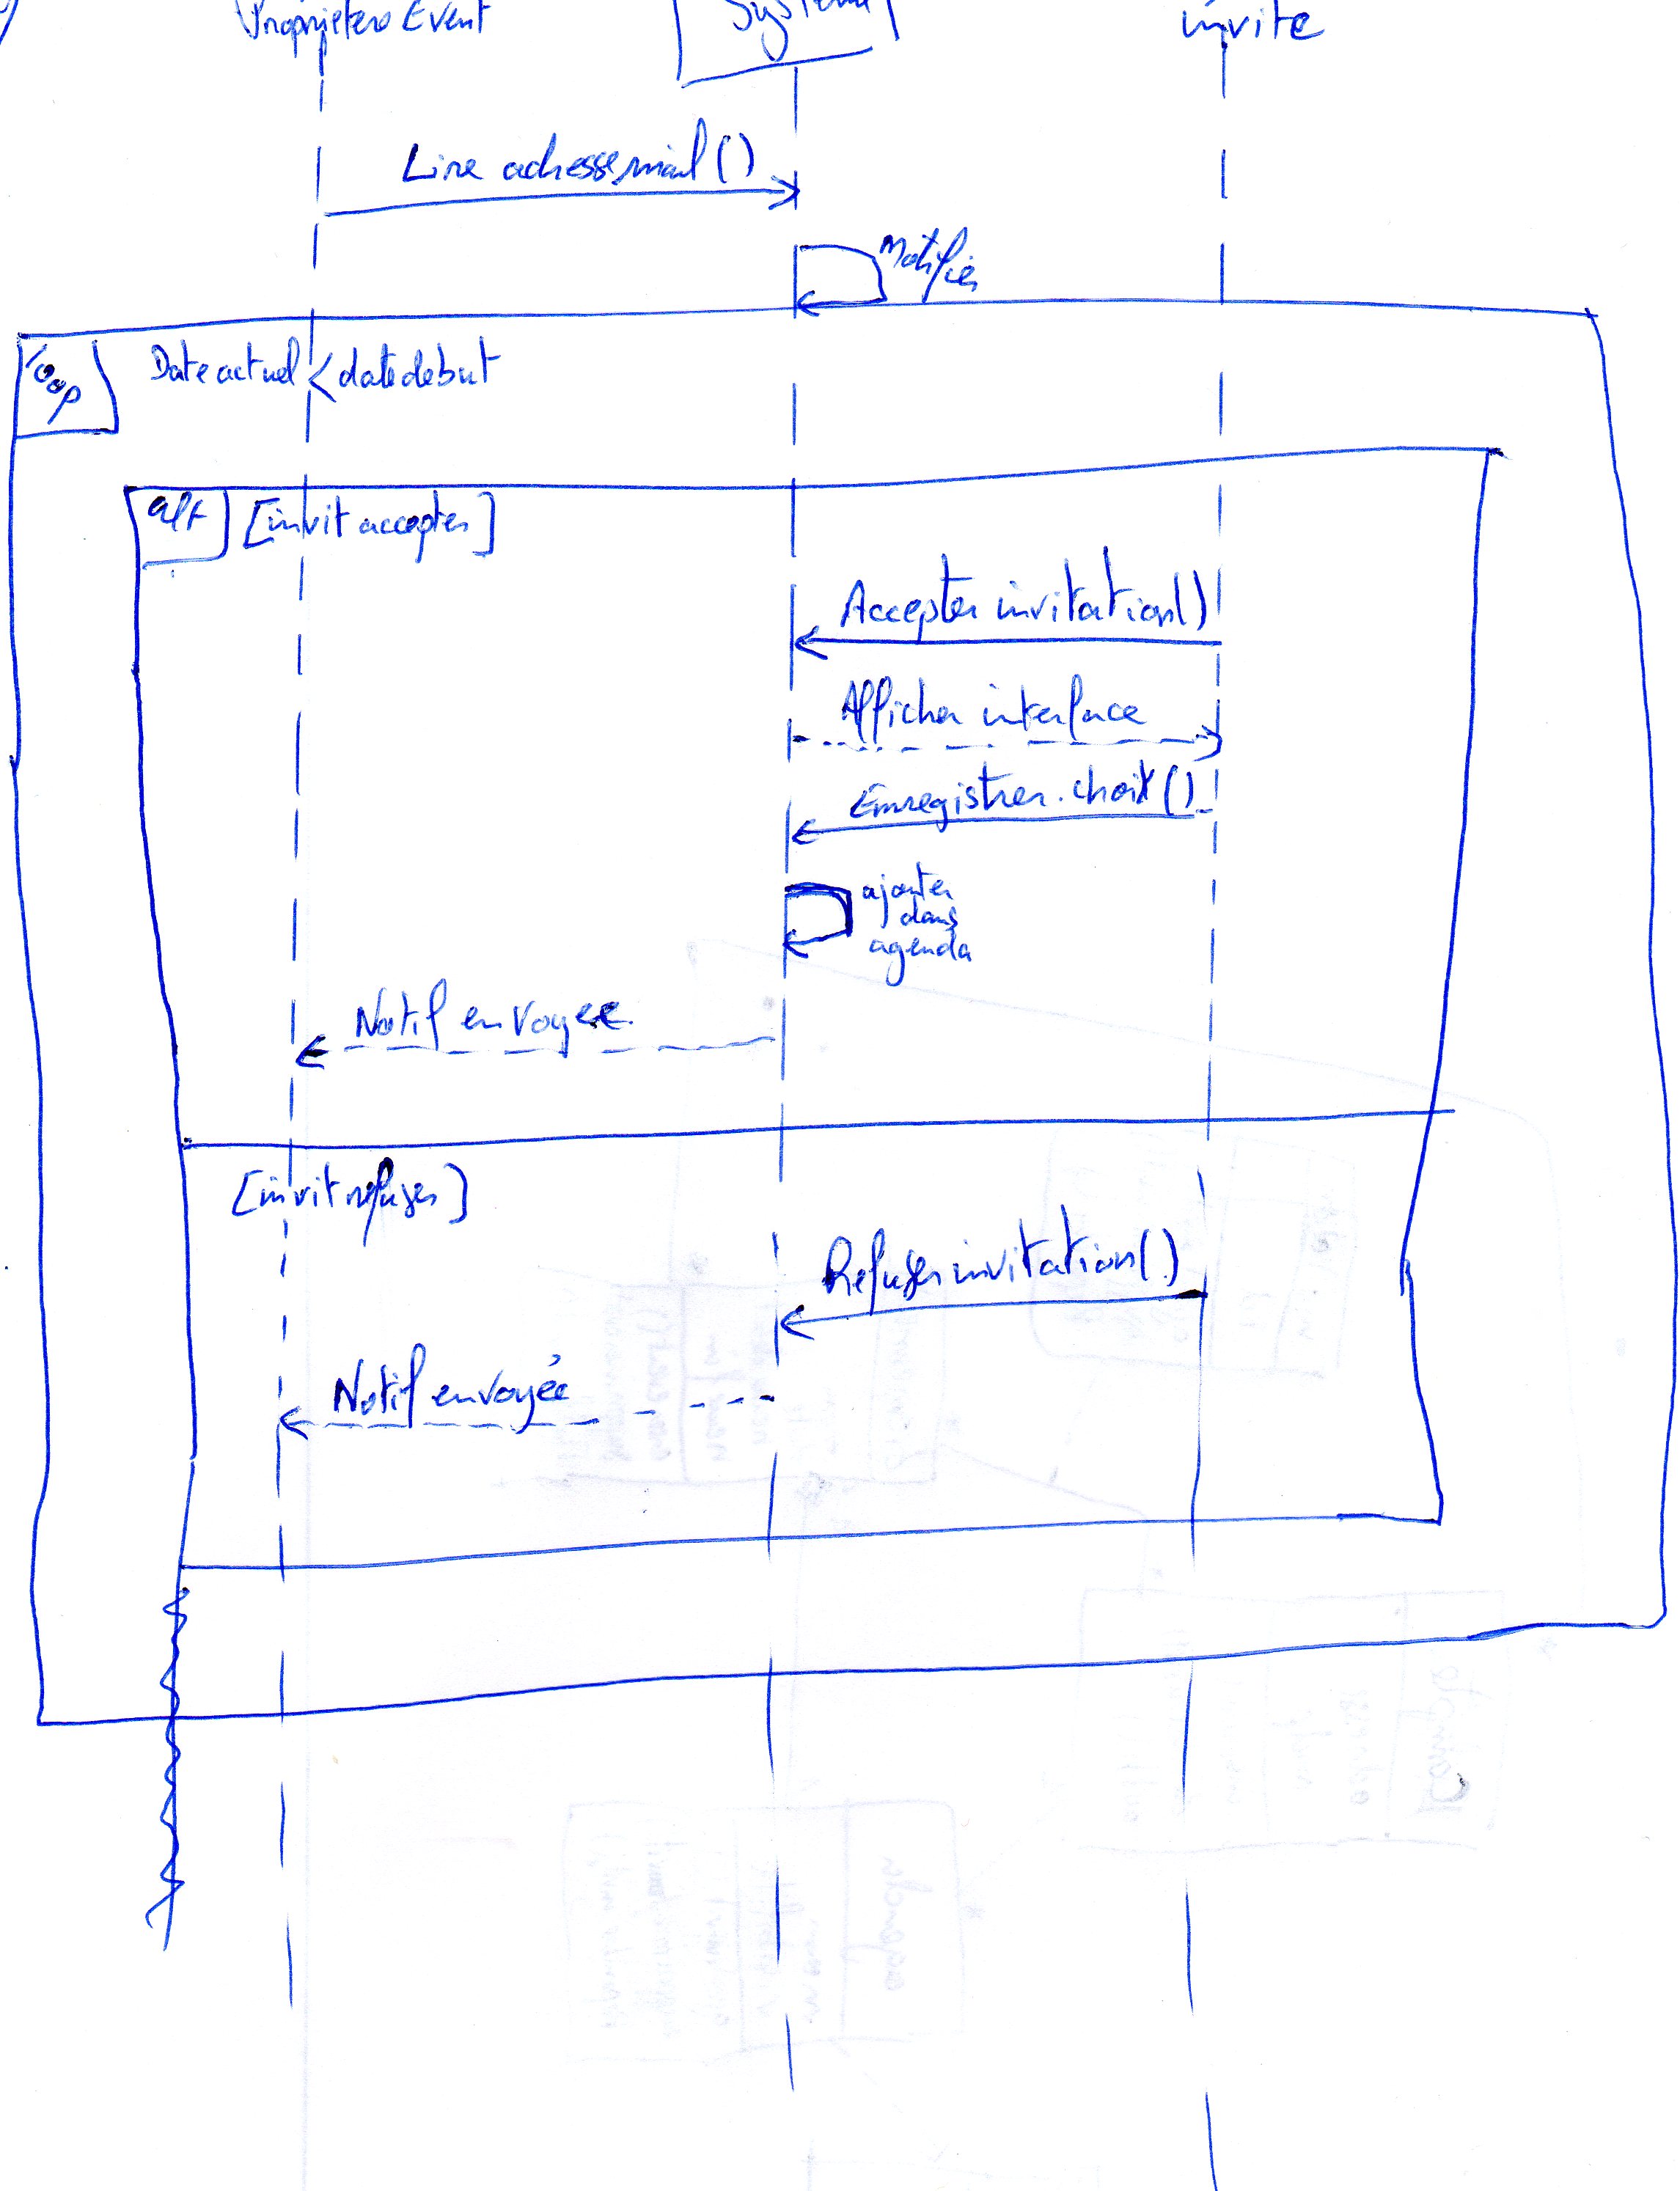 Proprietere Event
System
invite
Lire adresse mail ()
Notifier
loop
Date actuel < date debut
alt
[invit accepter]
Accepter invitation()
Afficher interface
Enregistrer choix ()
ajouter
dans
agenda
Notif envoyee
[invit refuser]
Refuser invitation()
Notif envoyée